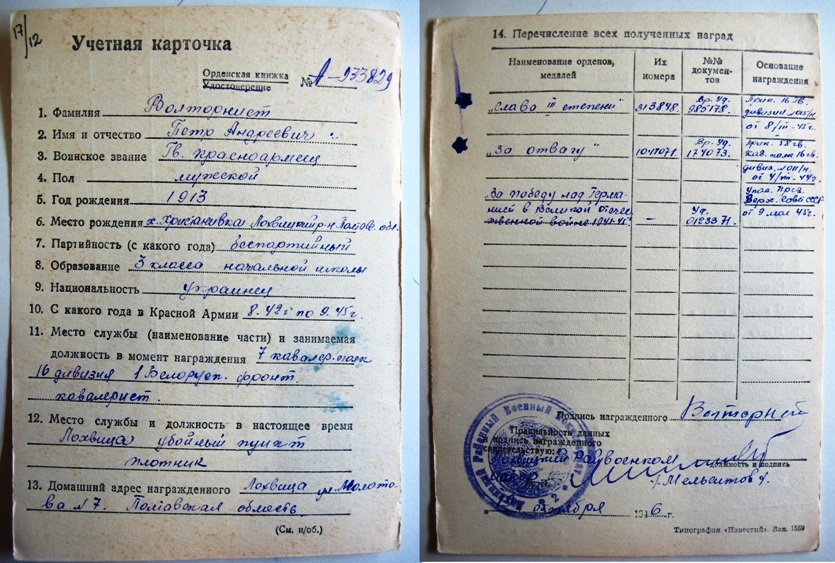 17/12
Учетная карточка
Орденская книжка
Удостоверение № А-933829
1. Фамилия Волторнист
2. Имя и отчество Петр Андреевич
3. Воинское звание Гв. Красноармеец
4. Пол мужской
5. Год рождения 1913
6. Место рождения х. Лохвицкий р-н Полтав. обл.
7. Партийность (с какого года) беспартийный
8. Образование 3 класса начальной школы
9. Национальность украинец
10. С какого года в Красной Армии 8.42г по 9.45г.
11. Место службы (наименование части) и занимаемая
должность в момент награждения 7 кавалер. полк
16 дивизия 1 Белорусп. фронт.
кавалерист.
12. Место службы и должность в настоящее время
Лохвица убойный пункт
плотник
13. Домашний адрес награжденного Лохвица ул. Молото-
ва №7. Полтавская область.
(См. н/об.)
14. Перечисление всех полученных наград
Наименование орденов, медалей
Их номера
№№ документов
Основание награждения
„Слава III степени" 313848 Вр. уд. 985178. Прик. 16 гв. дивизии
от 8/III-45г.
„За отвагу" 1047071 Вр. уд. 174073. Прик. 58 гв. кав. полк 16 гв.
дивиз.
„За победу над Германией в Великой Отечественной войне 1941-45" — Уд. 0123371. Указ През. Верх. Сов. СССР от 9 мая 45г.
Подпись награжденного
Правильность данных
и подпись награжденного
свидетельствую:
Лохвицкий Райвоенком
должность и подпись
октября 1946 г.
Типография «Известий». Зак. 1559